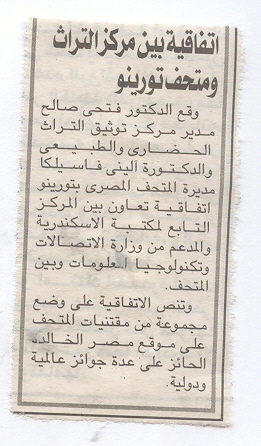 اتفاقية بين مركز التراث
ومتحف تورينو
وقع الدكتور فتحى صالح
مدير مركز توثيق التراث
الحضارى والطبيعى
والدكتورة الينى فاسيلكا
مديرة المتحف المصرى بتورينو
اتفاقية تعاون بين المركز
التابع لمكتبة الاسكندرية
والمدعم من وزارة الاتصالات
وتكنولوجيا المعلومات وبين
المتحف.
وتنص الاتفاقية على وضع
مجموعة من مقتنيات المتحف
على موقع مصر الخالدة
الحائز على عدة جوائز عالمية
ودولية.